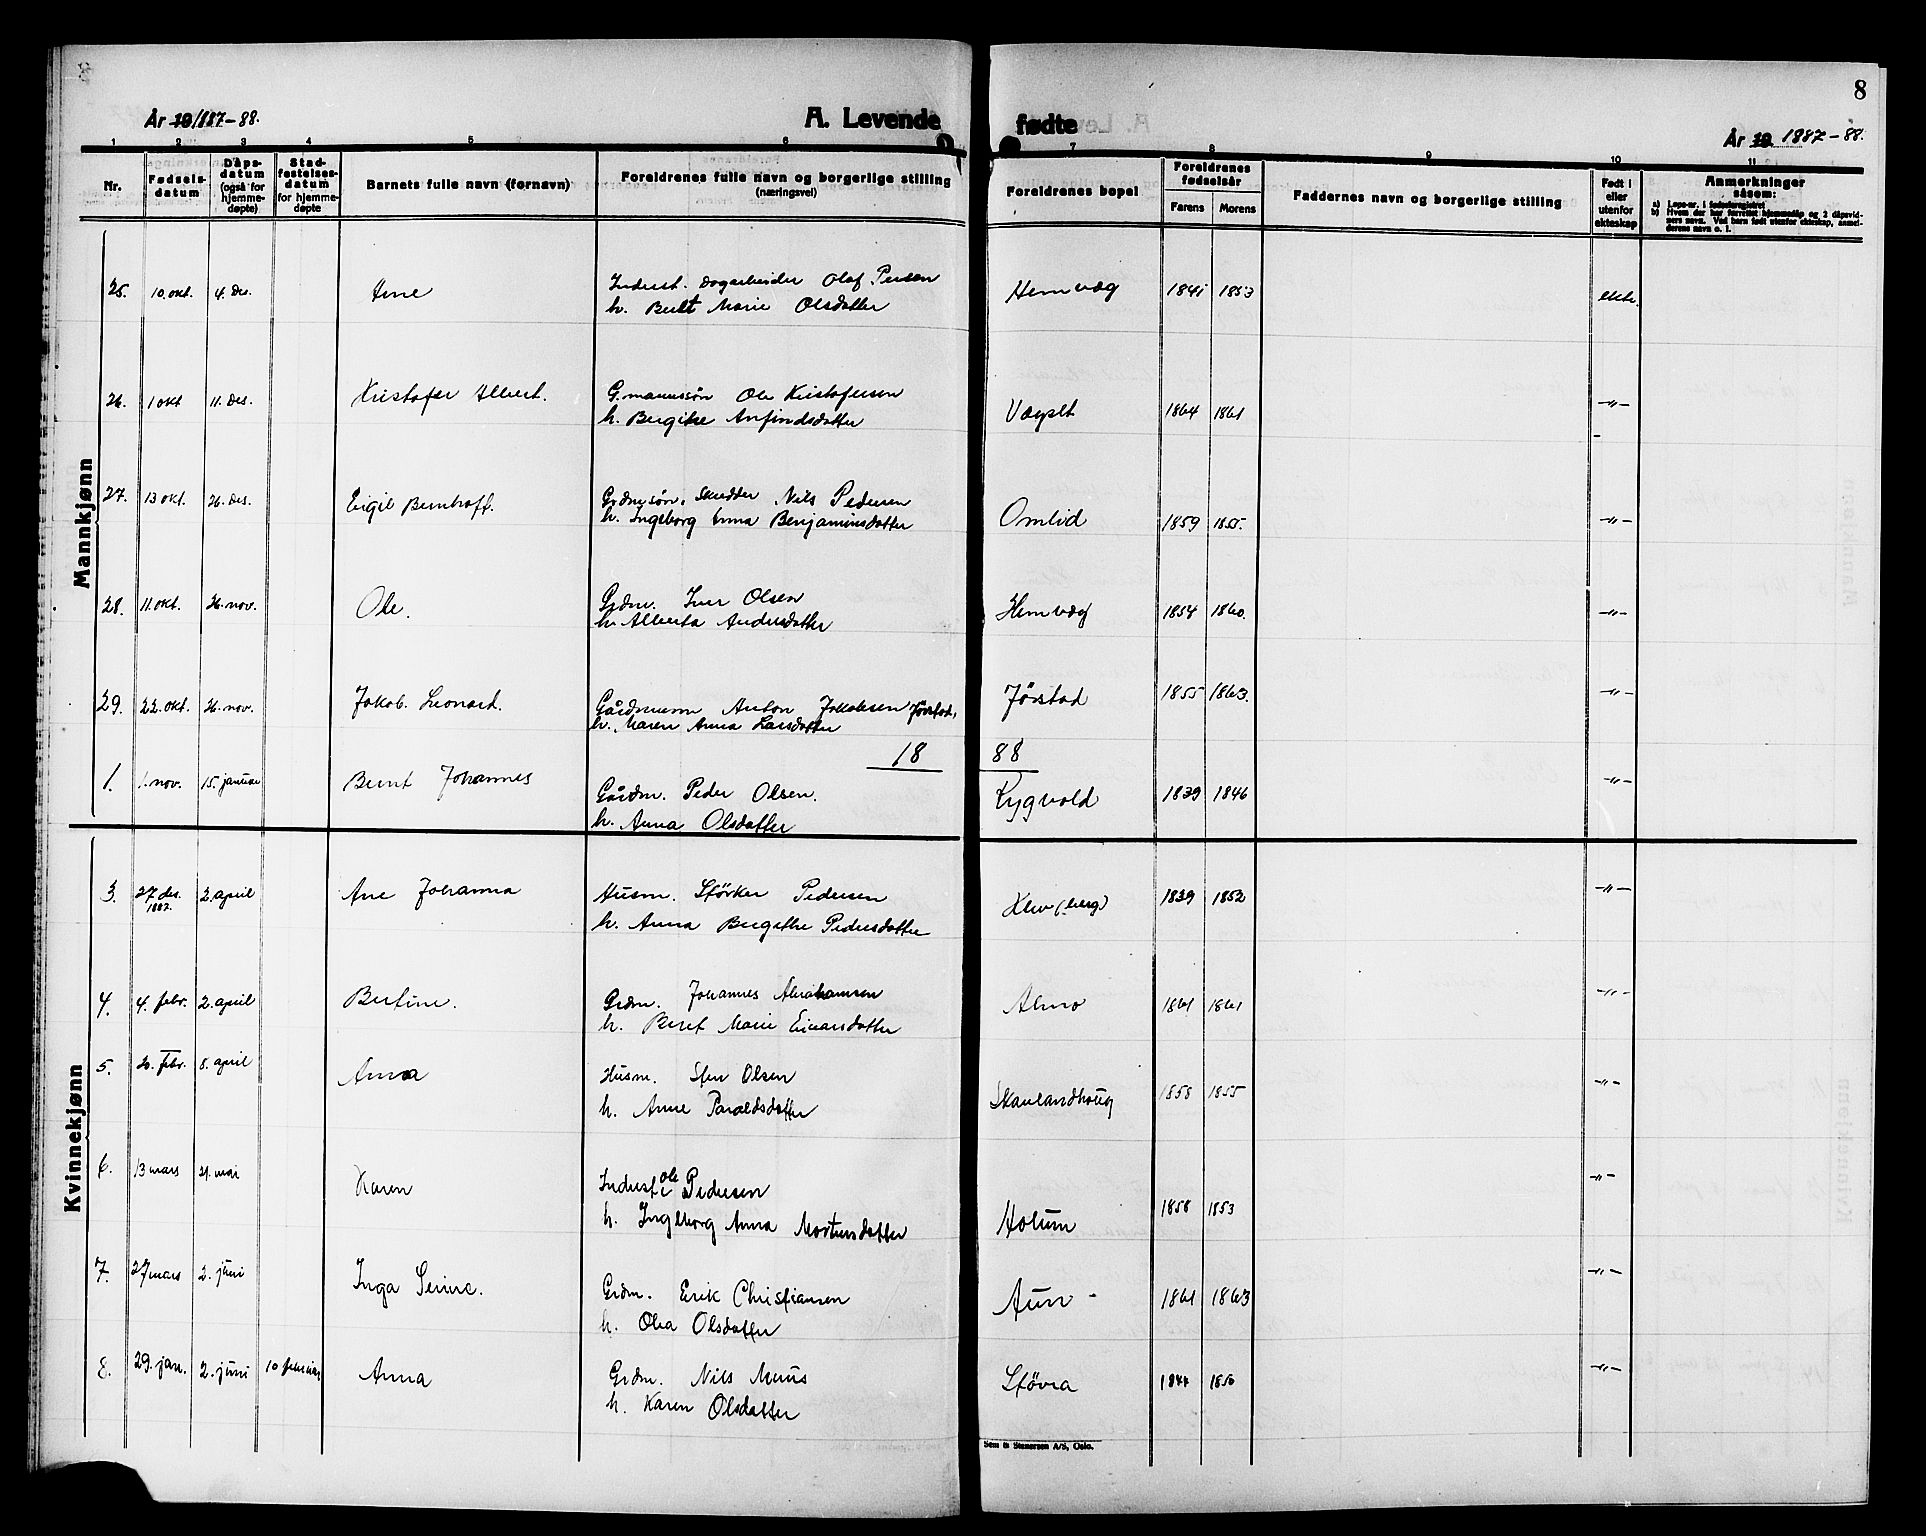 8
År 19/887-88.
A. Levende fødte
År 19 1887-88.
1 2 3 4 5 6 7 8 9 10 11
Nr.
Fødsels-datum
Dåps-datum (også for hjemme-døpte)
Stad-festelses-datum for hjemme-døpte
Barnets fulle navn (fornavn)
Foreldrenes fulle navn og borgerlige stilling (næringsvei)
Foreldrenes bopel
Foreldrenes fødselsår
Farens Morens
Faddernes navn og borgerlige stilling
Født i eller utenfor ekteskap
Anmerkninger såsom:
a) Løpe-nr. i fødselsregistret
b) Hvem der har forrettet hjemmedåp og 2 dåpsvid-
ners navn. Ved barn født utenfor ekteskap, anmel-
derens navn o. l.
Mannkjønn
25. 10. okt. 4. des. Arne Inderst. Dagarbeider Olaf Persen Hemvåg 1841 1853 ekte.
h. Berit Marie Olsdatter
26. 1 okt 11. des. Kristofer Albert. G.mannssøn Ole Kristofersen Vågslt 1864 1861 -"-
h. Bergitte Anfindsdatter
27. 13 okt. 26. des. Eigil Bernhoff. Grdmsøn. Skredder Nils Pedersen Omlid 1859 1855. -"-
h. Ingeborg Anna Benjaminsdatter
28. 11. okt. 26. nov. Ole. Grdm. Iver Olsen Hemvåg 1854 1860. -"-
h. Alberta Andersdatter
29. 22. okt. 26. nov. Jakob Leonard. Gårdmann Anton Jakobsen Jørstad, Jørstad 1855 1863. -"-
h. Maren Anna Larsdatter
18 88
1. 1. nov. 15. januar Bernt Johannes Gårdm. Peder Olsen. Rygvold 1839 1846 -"-
h. Anna Olsdatter
Kvinnekjønn
3. 27 des. 1887. 2. april Ane Johanna Husm. Størker Pedersen (berg) 1839 1852 -"-
h. Anna Bergithe Pedersdatter
4. 4. febr. 2. april Bertine. Grdm. Johannes Abrahamsen Almo 1861 1861 -"-
h. Beret Marie Einarsdatter
5. 20. febr. 8. april Anna Husm. Sten Olsen Skanlandhoug 1858 1855 -"-
h. Anne Paraldsdatter
6. 13 mars 21. mai Karen Inderst Ole Pedersen Holum 1858 1853 -"-
h. Ingeborg Anna Mortensdatter
7. 27 mars 2. juni Inga Serine. Grdm. Erik Christiansen Aun 1861 1863 -"-
h. Olea Olsdatter
8. 29. jan. 2. juni 10 februar Anna Grdm. Nils Muus Støvra 1844 1850 -"-
h. Karen Olsdatter
Sem & Stenersen A/S, Oslo.